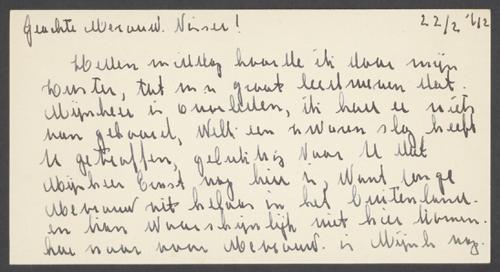 Geachte Mevrouw. Visser!
22/2 '62
Heden middag hoorde ik door mijn
zuster, tot m'n groot leedwezen dat.
Mijnheer is overleden, ik had er niets
van gehoord, Welk een zwaren slag heeft
U getroffen, gelukkig voor U dat
Mijnheer Joost nog hier is, Want jonge
Mevrouw zit helaas in het buitenland.
en kan Waarschijnlijk niet hier komen.
hoe naar voor Mevrouw. is Mijnh nog.